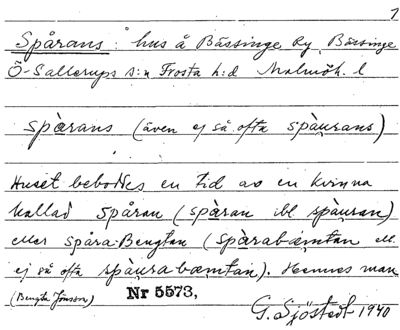 1
Spårans : hus å Bässinge by, Bässinge
Ö-Sallerups s:n Frosta h:d Malmöh. l
spàrans (även ej så ofta spàurans)
Huset beboddes en tid av en kvinna
kallad Spåran (spàran ibl spàuran)
eller Spåra Bengtan (spàrabæmtan ell.
ej så ofta spàura bæmtan). Hennes man
(Bengta Jönsson) Nr 5573,
G. Sjöstedt 1940